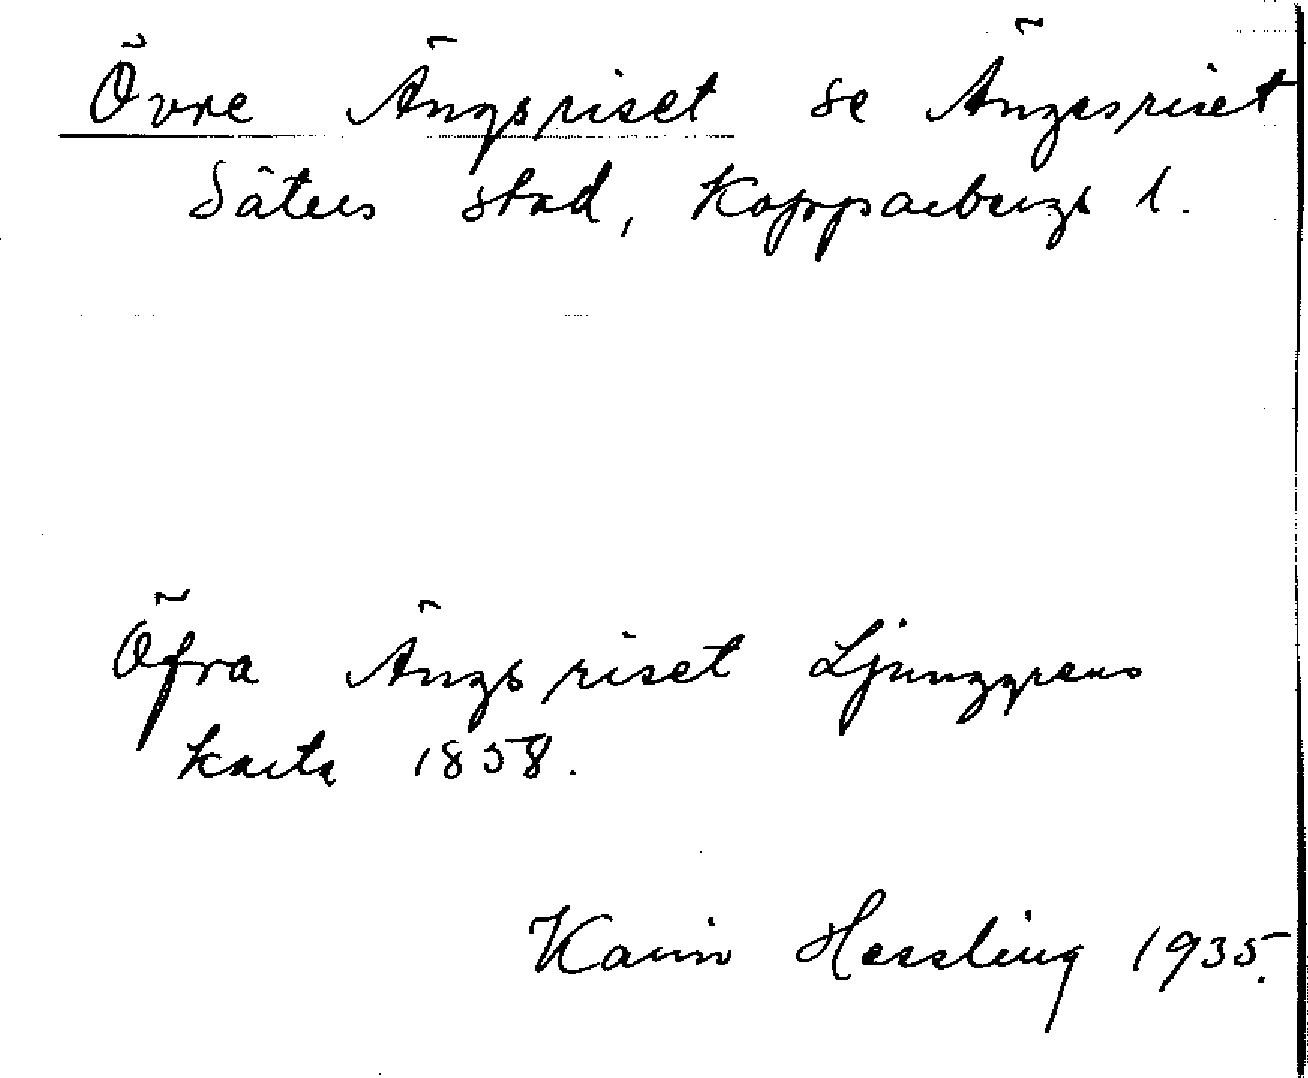 Övre Ängsriset se Ängesriset
Säters stad, Kopparbergs l.
Öfra Ängsriset Ljunggrens
karta 1858.
Karin Hessling 1935.